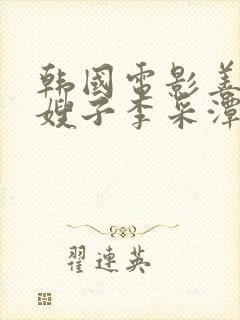 韩國電影善
嫂子李采潭
翟連英